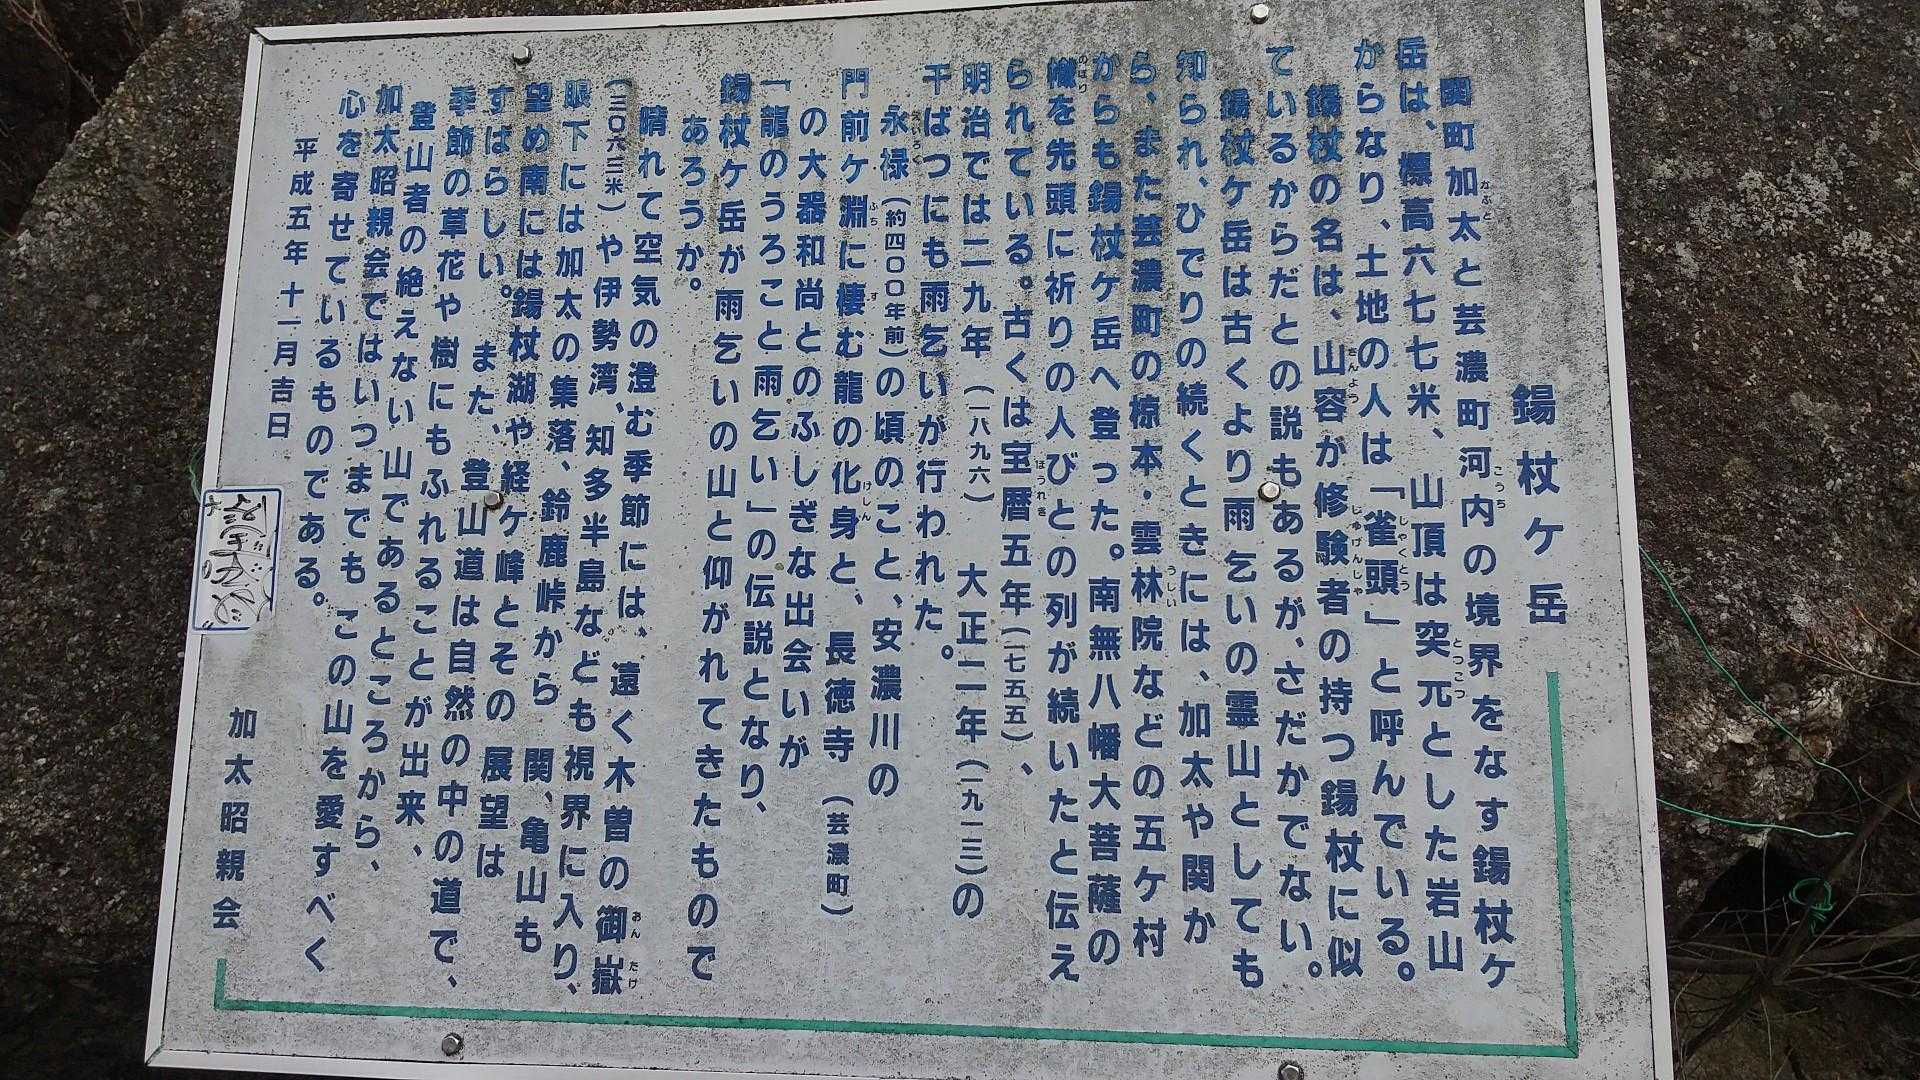 錫杖ケ岳
関町加太と芸濃町河内の境界をなす錫杖ケ
岳は、標高六七七米、山頂は突兀とした岩山
からなり、土地の人は「雀頭」と呼んでいる。
錫杖の名は、山容が修験者の持つ錫杖に似
ているからだとの説もあるが、さだかでない。
錫杖ケ岳は古くより雨乞いの霊山としても
知られ、ひでりの続くときには、加太や関か
ら、また芸濃町の椋本・雲林院などの五ケ村
からも錫杖ケ岳へ登った。南無八幡大菩薩の
幟を先頭に祈りの人びとの列が続いたと伝え
られている。古くは宝暦五年(一七五五)、
明治では二九年(一八九六) 大正二年(一九一三)の
干ばつにも雨乞いが行われた。
永禄(約四〇〇年前)の頃のこと、安濃川の
門前ケ淵に棲む龍の化身と、長徳寺(芸濃町)
の大器和尚とのふしぎな出会いが
「龍のうろこと雨乞い」の伝説となり、
錫杖ケ岳が雨乞いの山と仰がれてきたもので
あろうか。
晴れて空気の澄む季節には、遠く木曽の御嶽
(三〇六三米)や伊勢湾、知多半島なども視界に入り、
眼下には加太の集落、鈴鹿峠から 関、亀山も
望め南には錫杖湖や経ケ峰とその展望は
すばらしい。また、登山道は自然の中の道で、
季節の草花や樹にもふれることが出来、
登山者の絶えない山であるところから、
加太昭親会ではいつまでもこの山を愛すべく
心を寄せているものである。
平成五年十一月吉日
加太昭親会